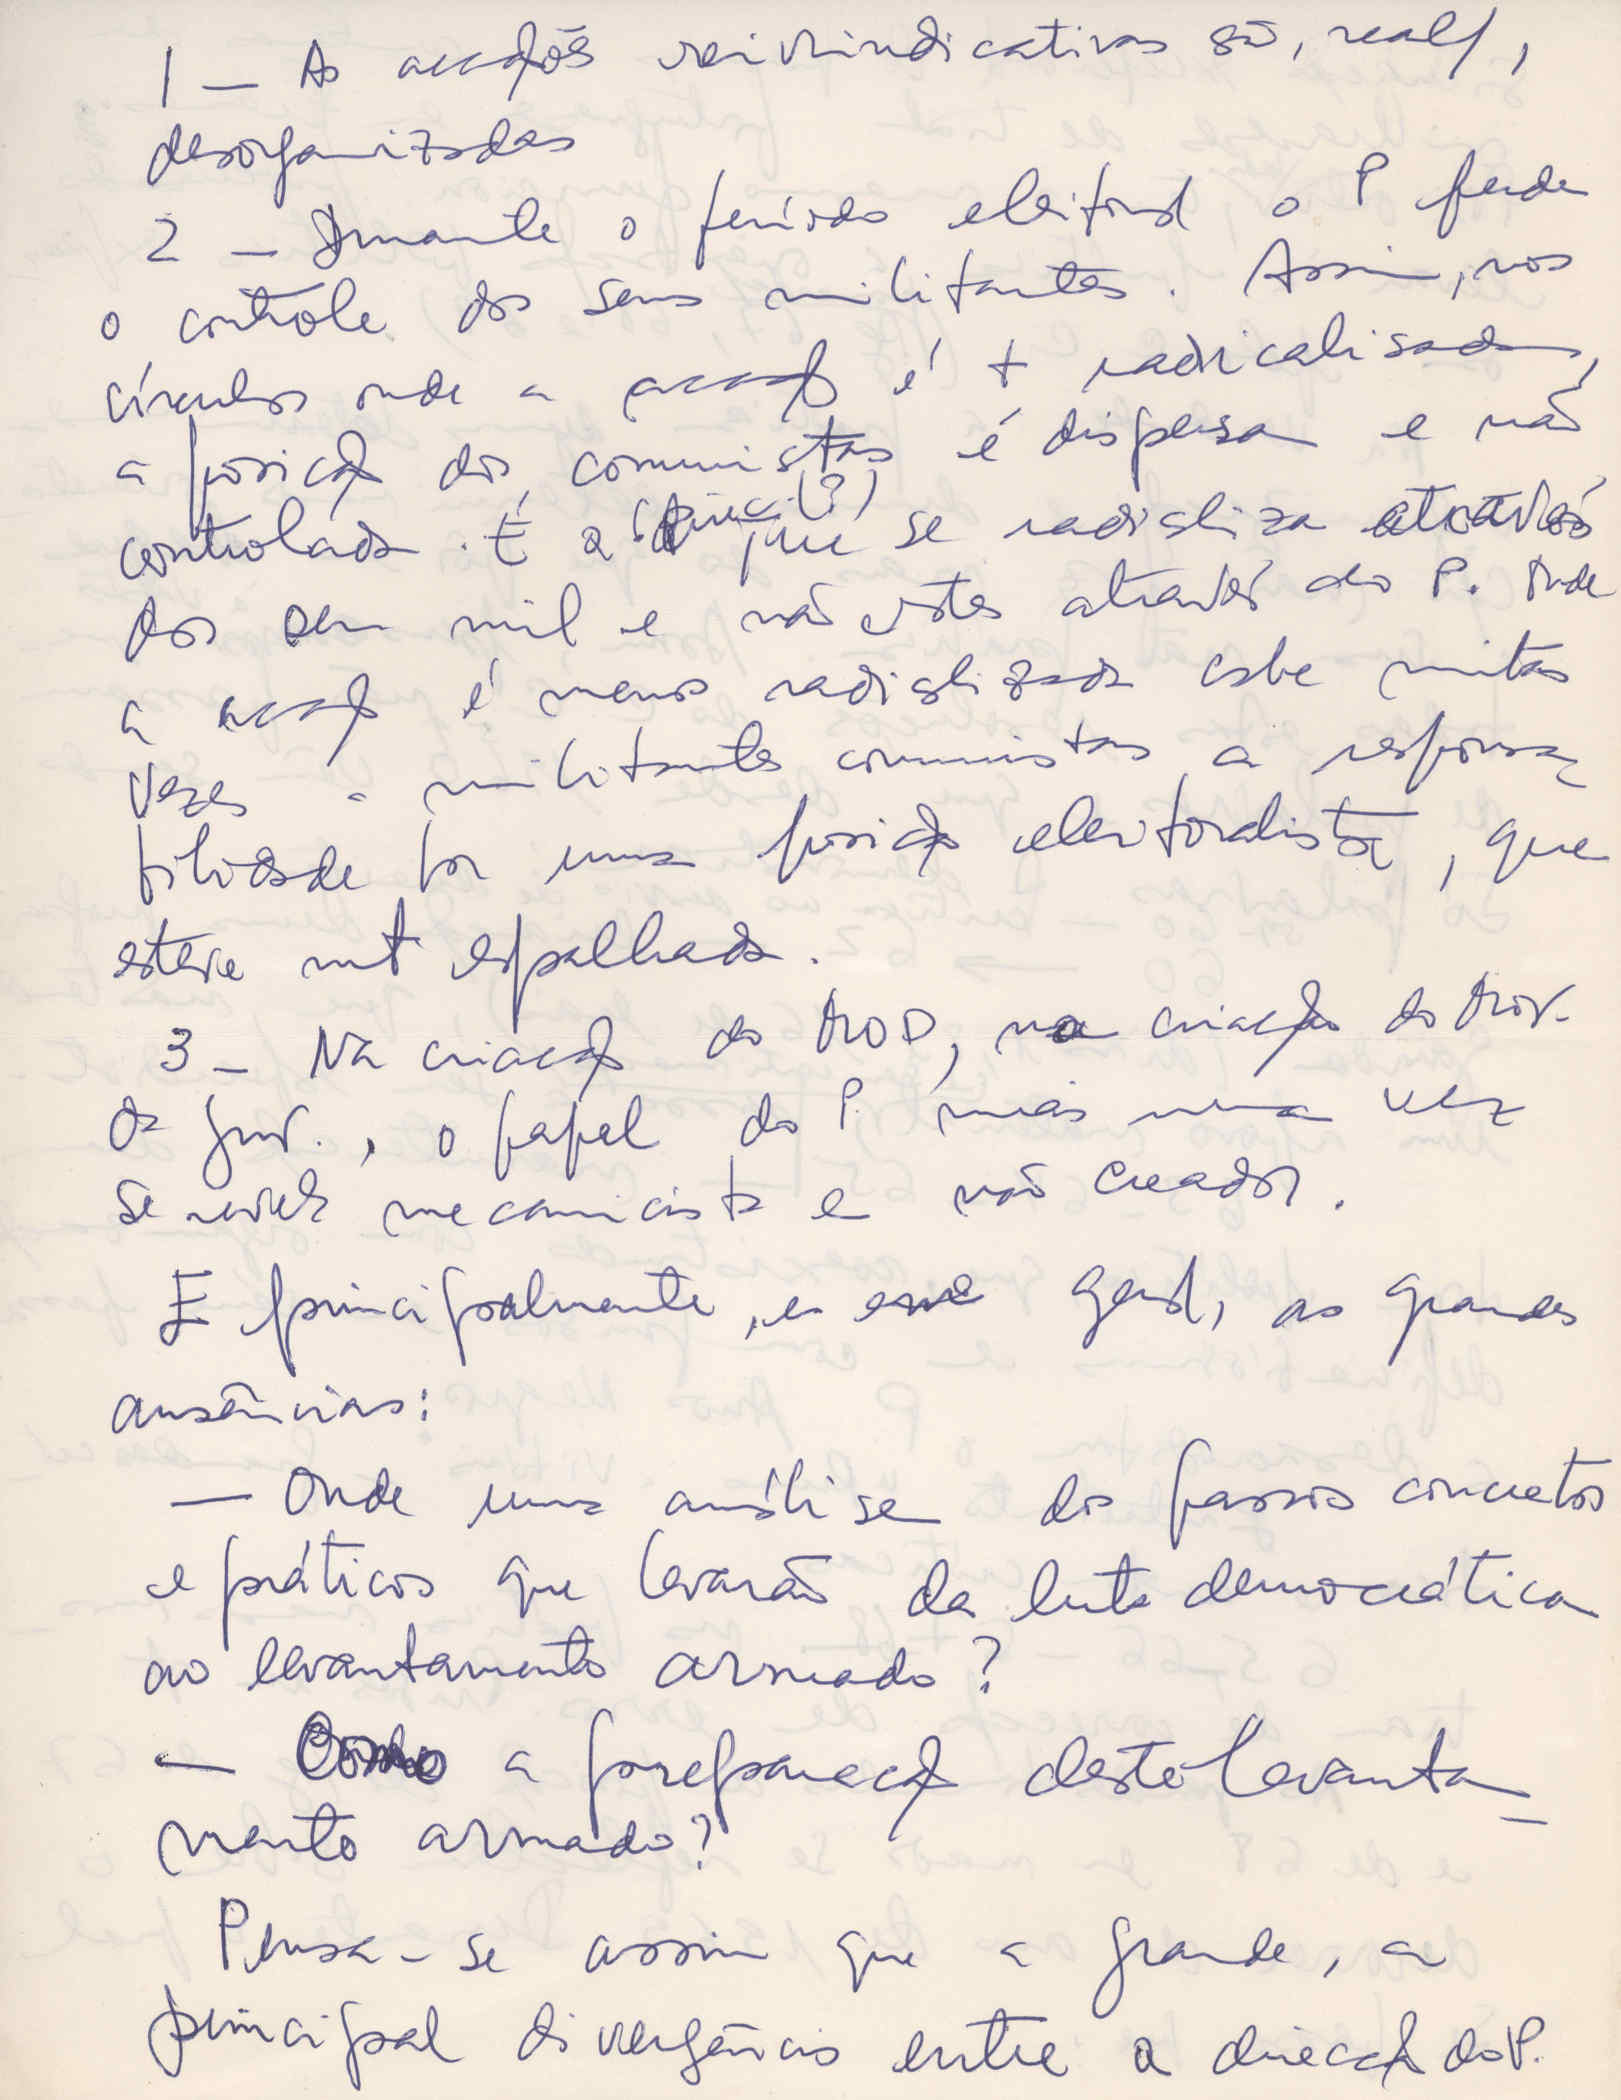 1 — As acções reivindicativas são, real/,
desorganizadas
2 — Durante o período eleitoral o P perde
o controle dos seus militantes. Assim, nos
círculos onde a acção é + radicalisada,
a posição dos comunistas é dispersa e não
controlada. É a que se radicaliza através
dos sem mil e não estes através do P. Onde
a acção é menos radicalizada cabe muitas
vezes a militantes comunistas a responsa-
bilidade por uma posição eleitoralista, que
esteve mt espalhada.
3 — Na criação do MOD, na criação do Mov.
da Juv., o papel do P. mais uma vez
se revela mecanicista e não creador.
E principalmente, e em geral, as grandes
ausências:
— Onde uma análise dos passos concretos
e práticos que levarão da luta democrática
ao levantamento armado?
— Como a preparação deste levanta-
mento armado?
Pensa-se assim que a grande, a
principal divergência entre a direcção do P.